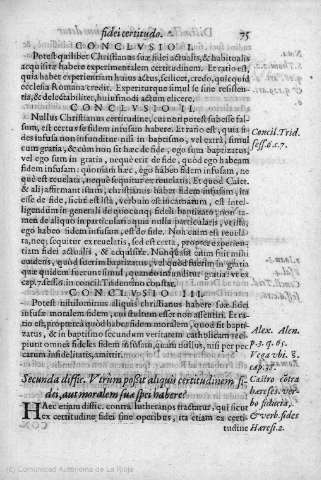 fidei certitudo. 75
CONCLVSIO I.
Potest quilibet Christianus suæ fidei actualis, & habitualis
acquisitæ habere experimentalem certitudinem. Et ratio est,
quia habet experimentum huius actus, scilicet, credo, quicquid
ecclesia Romana credit. Experiturque simul se sine resisten-
tia, & delectabiliter, huiusmodi actum elicere.
CONCLVSIO II.
Nullus Christianus certitudine, cui non potest subesse fal-
sum, est certus se fidem infusam habere. Et ratio est, quia fi-
des infusa non infunditur nisi in baptismo, vel extra, simul
cum gratia, & cum non sit hæc de fide, ego sum baptizatus,
vel ego sum in gratia, nequè erit de fide, quòd ego habeam
fidem infusam: quoniam hæc, ego habeo fidem infusam, ne
què est reuelata, nequè sequitur ex reuelatis. Et quod Caiet.
& alij affirmant istam, christianus habet fidem infusam, ita
esse de fide, sicut est ista, verbum est incarnatum, est intel-
ligendum in generali de quocunq; fideli baptizato, non ta-
men de aliquo in particulari: quia nulla particularis, vt ista,
ego habeo fidem infusam, est de fide. Non enim est reuela-
ta, nec sequitur ex reuelatis, sed est certa, propter experien-
tiam fidei actualis, & acquisitæ. Nunquam enim fuit mihi
euidens, quòd fuerim baptizatus, vel quòd fuerim in gratia
quæ quidem fuerunt simul, quando infunditur gratia: vt ex
cap. 7. sess. 6. in concil. Tridentino constat.
CONCLVSIO III.
Potest nihilominus aliquis christianus habere suæ fidei
infusæ moralem fidem, cui stultum esset non assentiri. Et ra-
tio est, propterea quòd habet moralem fidem, quod sit bapti-
zatus, & in baptismo catholicorum, nullo impedimento, reci-
piunt omnes fideles fidem infusam, quam nullus, nisi per pec
catum infidelitatis, amittit.
Secunda diffic. Vtrùm possit aliquis certitudinem fi-
dei, aut moralem suæ spei habere?
HAec etiam diffic. contra lutheranos tractatur, qui sicut
ex certitudine fidei sine operibus, ita etiam ex certi-
tudine
Concil. Trid.
sess. 6. c. 7.
Alex. Alen.
p. 3. q. 65.
Vega vbi s.
cap. 38.
Castro cōtra
hæreses. ver-
bo fiducia,
& verb. fides
Hæresi. 2.
(c) Comunidad Autónoma de La Rioja